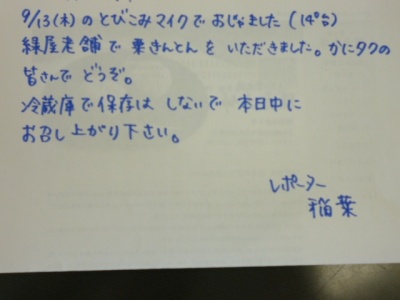 9/13(木)のとびこみマイクでおじゃました(14º台)
緑屋老舗で栗きんとんをいただきました。かにタクの
皆さんでどうぞ。
冷蔵庫で保存はしないで本日中に
お召し上がり下さい。
レポーター
稲葉